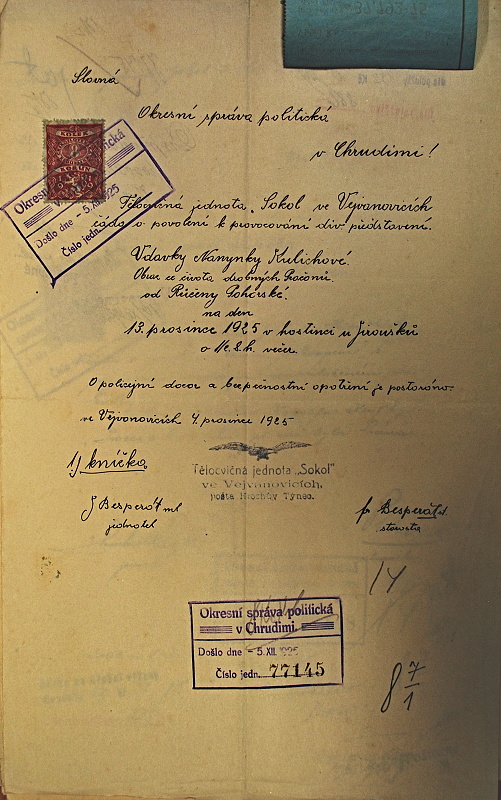 Slavná
Okresní správa politická
v Chrudimi!
KOLEK
KORUN
Okresní politická
Došlo dne - 5. XII. 1925
Číslo jedn.
Tělocvičná jednota "Sokol" ve Vejvanovicích
žádá o povolení k provozování div. představení.
Vdavky Nanynky Kulichové
Obraz ze života drobných
od Růženy Pohorské.
na den
13. prosince 1925 v hostinci u Jiroušků
o 1/2 8. h. večer.
O policejní dozor a bezpečnostní opatření je postaráno.
ve Vejvanovicích 4. prosince 1925
1) knížka.
Tělocvičná jednota „Sokol"
ve Vejvanovicích,
pošta Hrochův Týnec.
J Besperát ml
jednatel
fr Besperát st.
starosta
14
Okresní správa politická
v Chrudimi.
Došlo dne - 5. XII. 1925
Číslo jedn. 77145
8 7/1